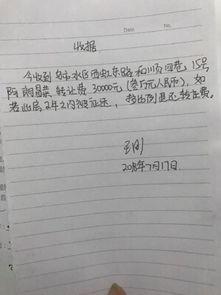 收据
今收到 水区西虹东路和川页四巷, 15号
阿 转让费 30000元(叁万元人民币), 如
若此店2年之内被征迁, 按比例退还转让费。
王刚
2018年7月17日